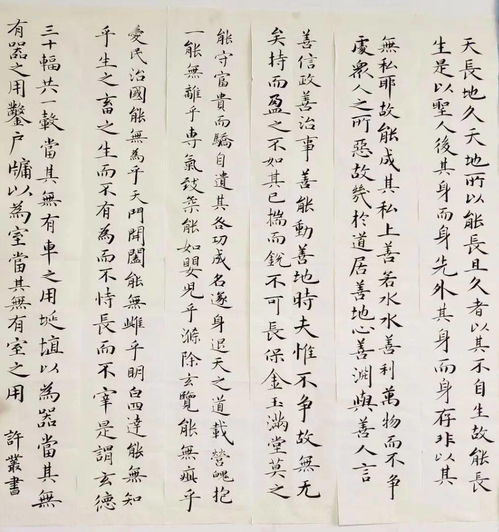 天長地久天地所以能長且久者以其不自生故能長
生是以聖人後其身而身先外其身而身存非以其
無私耶故能成其私上善若水水善利萬物而不争
處衆人之所惡故幾於道居善地心善淵與善人言
善信政善治事善能動善地時夫惟不争故無尤
矣持而盈之不如其已揣而銳不可長保金玉滿堂莫之
能守富貴而驕自遺其各功成名遂身退天之道載營魄抱
一能無離乎專氣致柔能如嬰兒乎滌除玄覽能無疵乎
愛民治國能無為乎天門開闔能無雌乎明白四達能無知
乎生之畜之生而不有為而不恃長而不宰是謂玄德
三十幅共一轂當其無有車之用埏埴以為器當其無
有器之用鑿户牖以為室當其無有室之用 許叢書